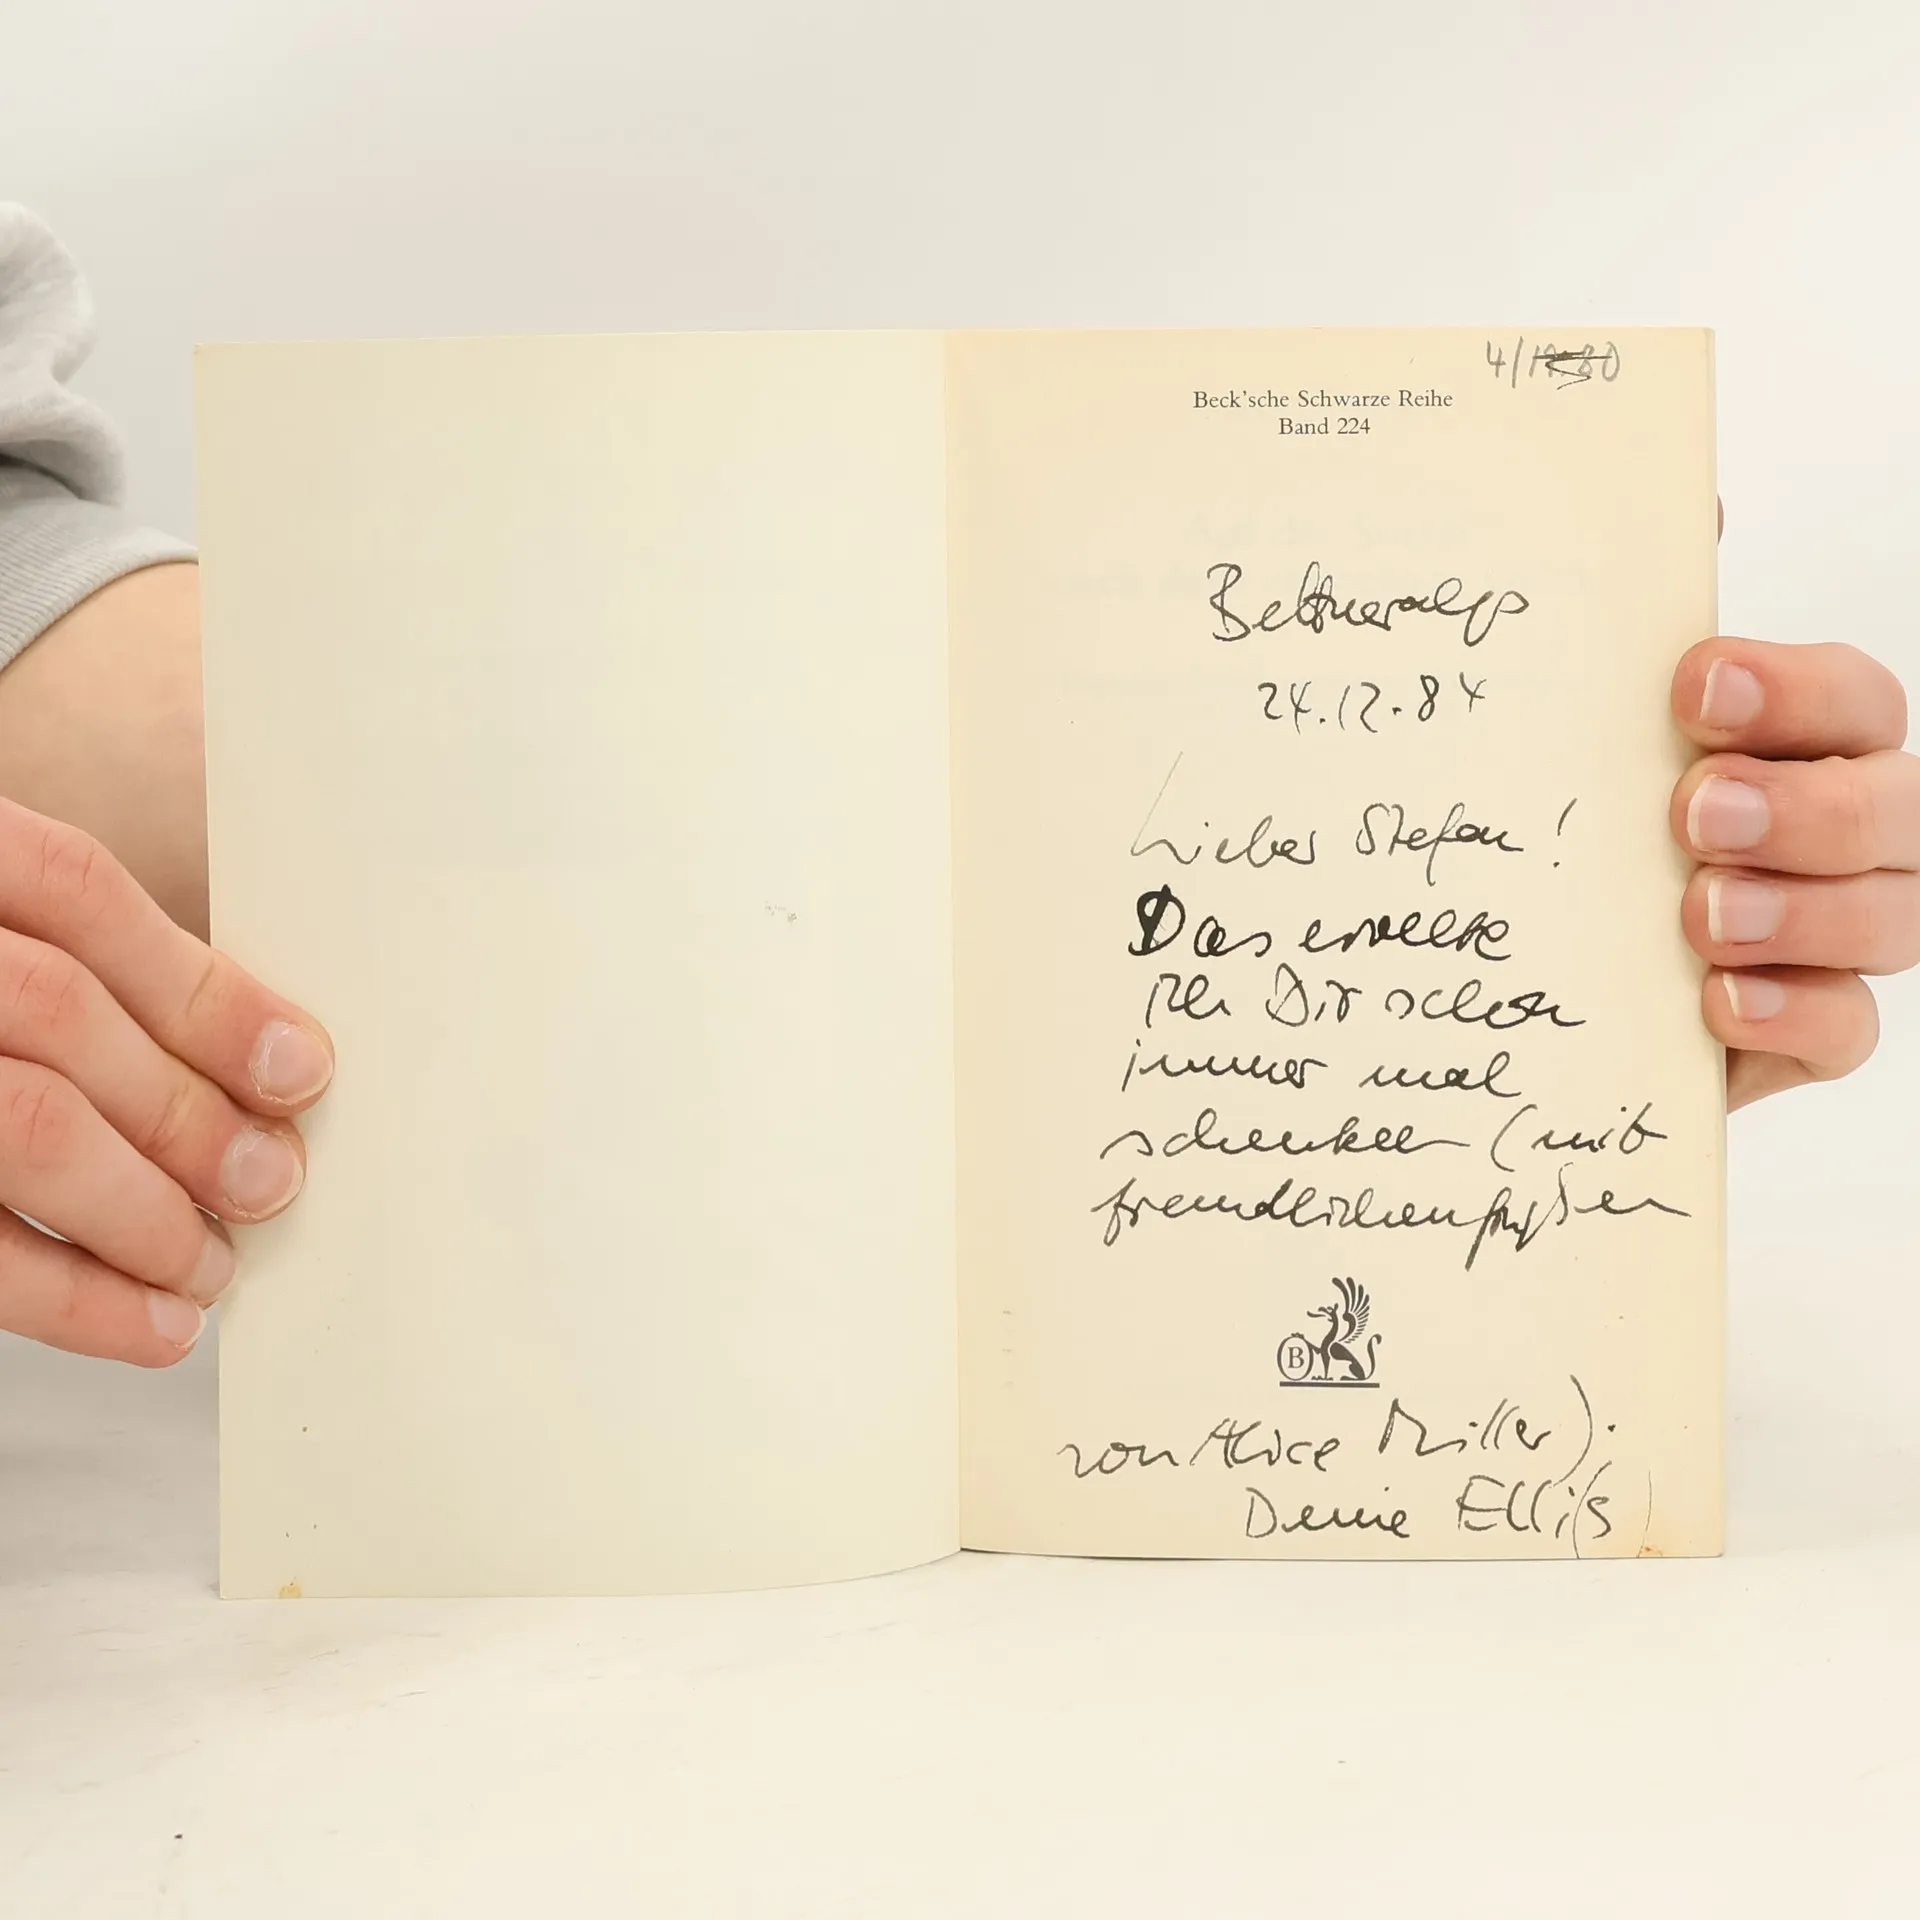 4/19.80
Beck’sche Schwarze Reihe
Band 224
Bettmeralp
24.12.84
Lieber Stefan!
Das wollte
ich Dir schon
immer mal
schenken (mit
freundlichen Grüßen
B
von Alice Miller).
Deine Elli(s)